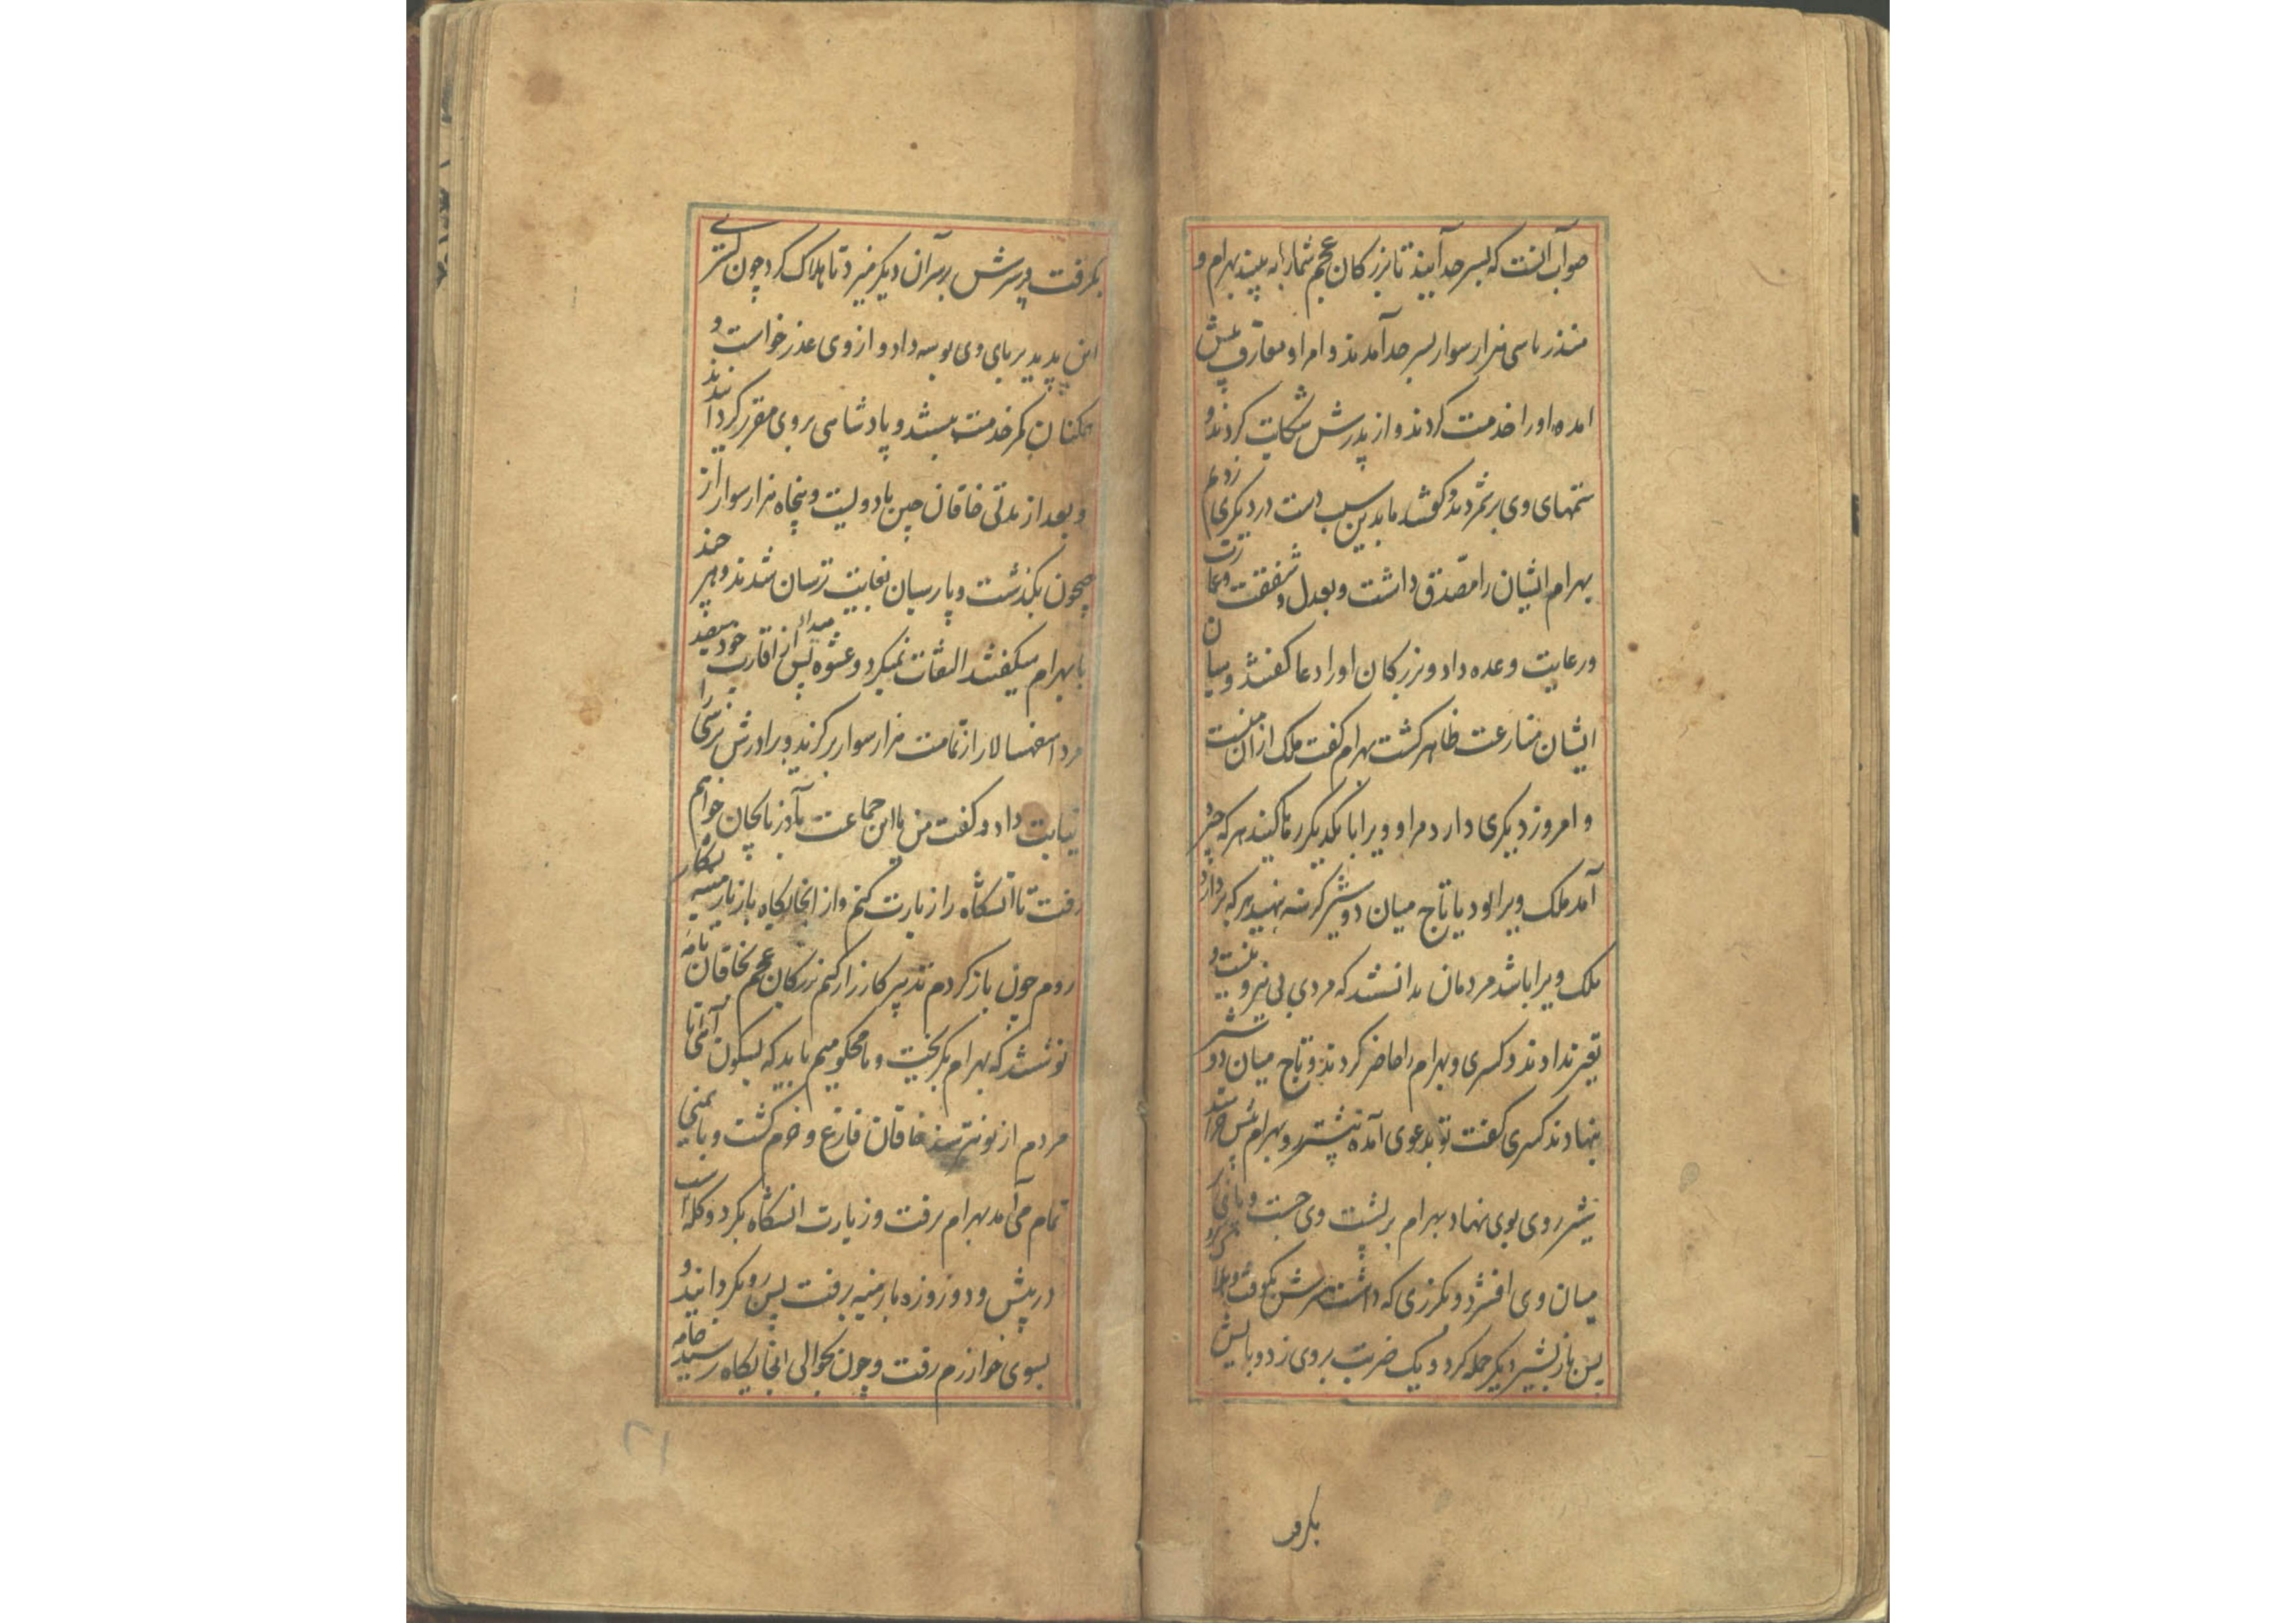 صواب آنست که بسر حد آیند تا بزرکان عجم شمارا به بینند بهرام و
منذر با سی هزار سوار بسر حد آمدند و امرا و معارف پیش
امده او را خدمت کردند و از پدرش شکایت کردند و
ستمهای وی برشمردند و کفتند ما بدین سبب دست در دیکری زدیم
بهرام ایشان را مصدق داشت و بعدل و شفقت و عمارت
و رعایت وعده داد و بزرکان او را دعا کفتند و میان
ایشان منازعت ظاهر کشت بهرام کفت ملک از ان منست
و امروز دیکری دارد مرا و ویرا با یکدیکر رها کنید هر که چیره
آمد ملک ویرا بود یا تاج میان دو شیر کرسنه بنهید هر که بردارد
ملک ویرا باشد مردمان بدانستند که مردی بی نیرو نیست و
تغیر ندادند و کسری و بهرام را حاضر کردند و تاج میان دو شیر
بنهادند کسری کفت تو بدعوی آمده پیشتر رو بهرام پیش خرامید
شیر روی بوی نهاد بهرام بر پشت وی جست و پای بر
میان وی افشرد و بکرزی که داشت سرش بکوفت و هلاک کرد
پس باز بشیر دیکر حمله کرد و یک ضربت بر وی زد و بالش
بکرفت
بکرفت و سرش بر سر آن دیکر میزد تا هلاک کرد چون کسری
این بدید بر پای وی بوسه داد و از وی عذر خواست و
همکنان کمر خدمت ببستند و پادشاهی بر وی مقرر کردانیدند
و بعد از مدتی خاقان چین با دویست و پنجاه هزار سوار از
جیحون بکذشت و پارسیان بغایت ترسان شدند و هر چند
با بهرام میکفتند التفات نمیکرد و عشوه میداد پس از اقارب خود سیصد
مرد اسفهسالار از تمامت هزار سوار برکزید و برادرش نرسی را
نیابت داد و کفت من با این جماعت بآذربایجان خواهم
رفت تا آتشکاه را زیارت کنم و از انجایکاه باز بارمینیه بشکار
روم چون باز کردم تدبیر کارزار کنم بزرکان عجم بخاقان نامه
نوشتند که بهرام بکریخت و ما محکومیم باید که بسکون آئی تا
مردم از تو نترسند خاقان فارغ و خرم کشت و بانی
تمام می آمد بهرام برفت و زیارت اتشکاه بکرد و کله اسب
در پیش و دو روزه بارمنیه برفت پس رو بکردانید و
بسوی خوارزم رفت و چون بحوالی انجایکاه رسید جامه